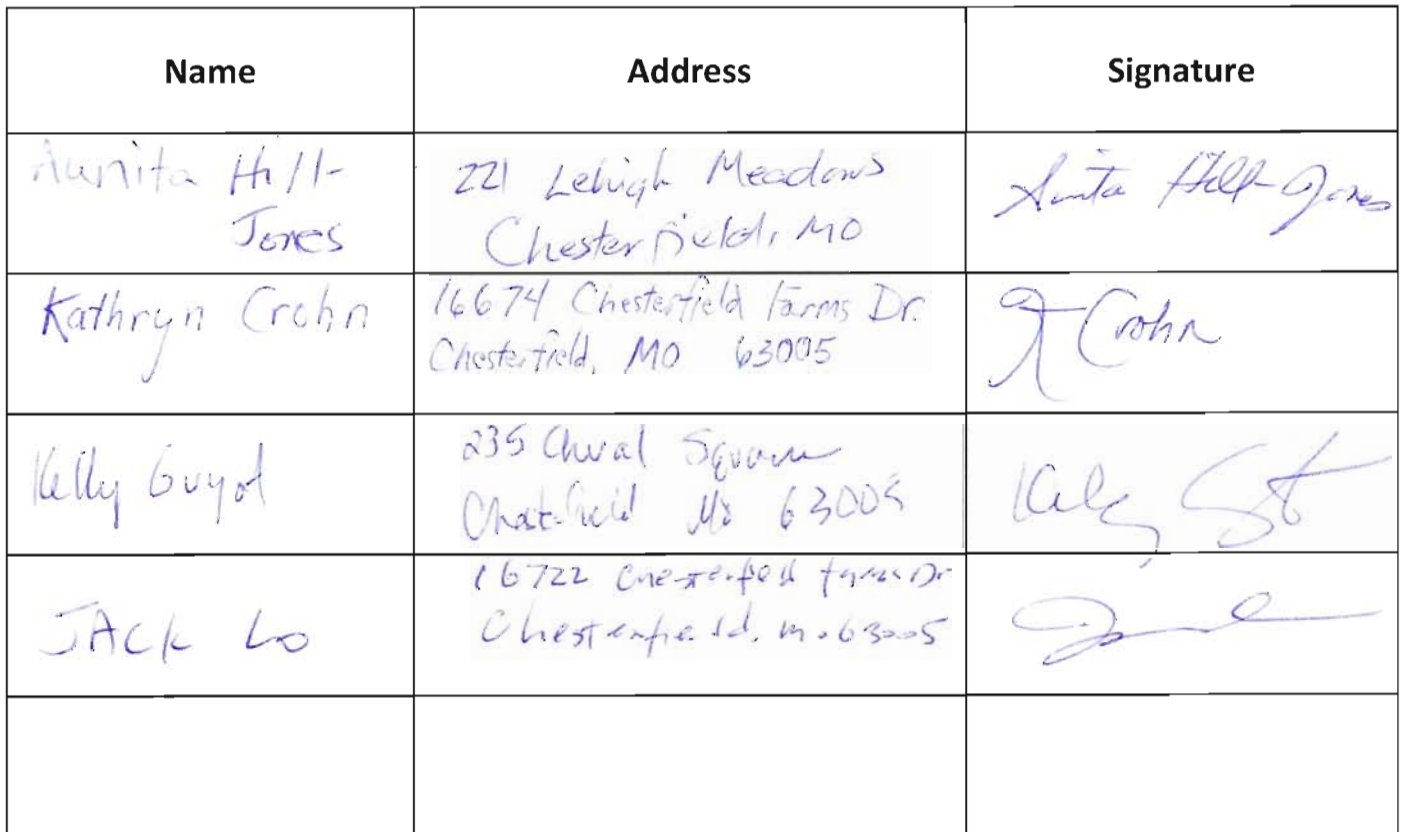 Name Address Signature
Aunita Hill-
Jones
221 Lehigh Meadows
Chesterfield, MO
Anita Hill-Jones
Kathryn Crohn
16674 Chesterfield Farms Dr.
Chesterfield, MO 63005
K Crohn
Kelly Guyot
235 Cheval Square
Chesterfield Mo 63005
JAck Lo
16722 Chesterfield farms Dr
Chesterfield, mo 63005